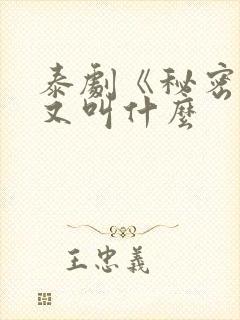 泰劇《秘密
又叫什麼
王忠義